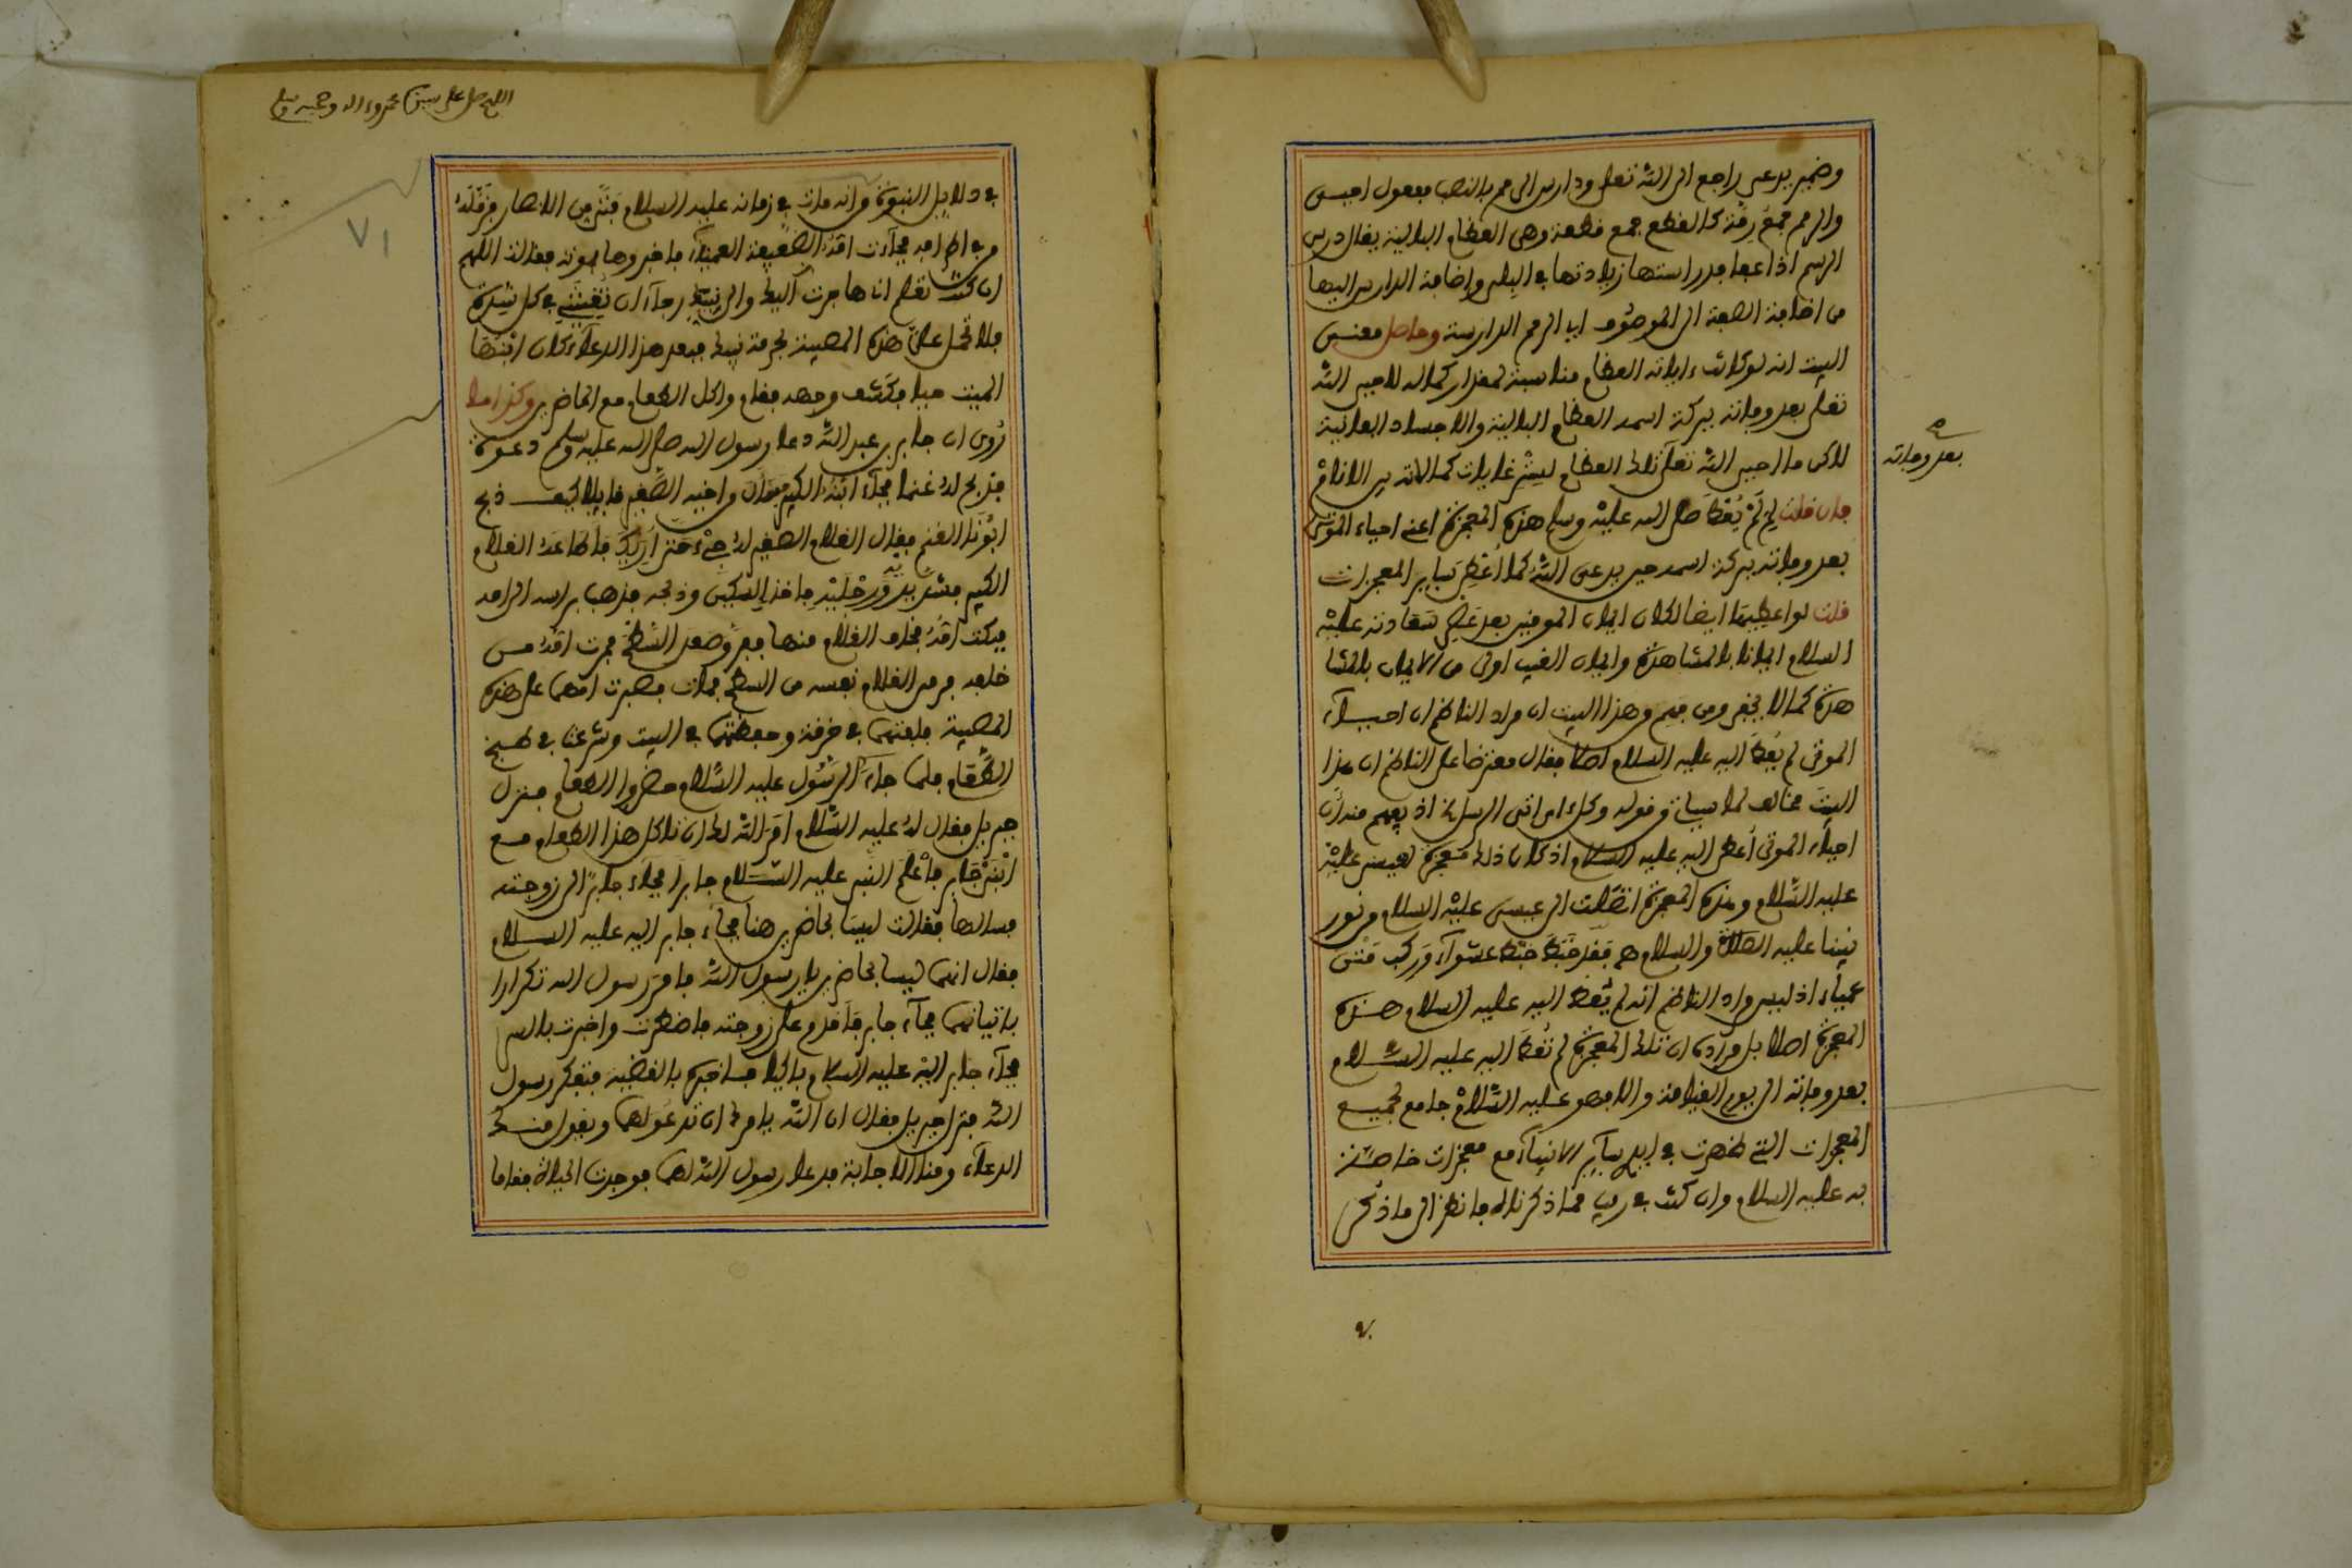 وضمير يدعى راجع الى الله تعلى ودارس الرمم بالنصب مفعول احيى
والرمم جمع رمة كالقطع جمع قطعة وهى العظام البالية يقال درس
الرسم اذا عفا فدراستها زيادتها في البلى واضافة الدارس اليها
من اضافة الصفة الى الموصوف اي الرمم الدارسة وحاصل معنى
البيت انه لو كانت ءاياته العظام مناسبة لمقدار كماله لاحيى الله
تعلى بعد وفاته ببركة اسمه العظام البالية والاجساد الفانية
لاكن ما احيى الله تعلى تلك العظام لستر غايات كمالاته من الانام
فان قلت لم لم يعط صلى الله عليه وسلم هذه المعجزة اعنى احياء الموتى
بعد وفاته ببركة اسمه حين يدعى الله كما اعطى سائر المعجزات
قلت لو اعطيها ايضا لكان ايمان المومنين بعد عصر سعادته عليه
السلام ايمانا بالمشاهدة وايمان الغيب اولى من الايمان بالمشا
هدة كما لا يخفى ومن فهم وهذا البيت ان مراد الناظم ان احياء
الموتى لم يعط اليه عليه السلام اصلا فقال معترضا على الناظم ان هذا
البيت مخالف لما سياتى في قوله وكل ءاى اتى الرسل الخ اذ يفهم منه ان
احياء الموتى اعطى اليه عليه السلام اذ كان ذلك معجزة لعيسى عليه
عليه السلام وهذه المعجزة اتصلت الى عيسى عليه السلام من نور
نبينا عليه الصلاة والسلام فقد خبط خبط عشواء وركب متن
عمياء اذ ليس مراد الناظم انه لم يعط اليه عليه السلام هذه
المعجزة اصلا بل مراده ان تلك المعجزة لم تعط اليه عليه السلام
بعد وفاته الى يوم القيامة والا فهو عليه السلام جامع لجميع
المعجزات التى ظهرت في ايدى سائر الانبياء مع معجزات خاصة
به عليه السلام وان كنت في ريب مما ذكرناه فانظر الى ما ذكر
بعد وفاته
اللهم صل على سيدنا محمد وءاله وصحبه وسلم
٧١
في دلايل النبوة وانه مات في زمانه عليه السلام فتى من الانصار
فجاءت امه الضعيفة العمياء فاخبروها بموته فقالت اللهم
ان كنت تعلم انى هاجرت اليك والى نبيك رجاء ان تغيثنى في كل شدة
فلا تحمل على هذه المصيبة بحرمة نبيك فبعد هذا الدعاء كان ابنها
الميت حيا فكشف وجهه فقام واكل الطعام مع الحاضرين وكذا ما
روى ان جابر بن عبد الله دعا رسول الله صلى الله عليه وسلم دعوة
فذبح له غنما فجاء ابنه الكبير فقال لاخيه الصغير كيف ذبح
ابونا الغنم فقال الغلام الصغير له حتى اريك فاطاعه الغلام
الكبير فشد يديه ورجليه فاخذ السكين وذبحه فذهب براسه الى امه
فبكت امه فخاف الغلام منها ففر وصعد السطح فجرت امه من
خلفه فرمى الغلام نفسه من السطح فمات فصبرت امهما على هذه
المصيبة فلفتهما في خرقة وحفظتهما في البيت وشرعت في طبخ
الطعام فلما جاء الرسول عليه السلام حضروا الطعام فنزل
جبريل فقال له عليه السلام امر الله لك ان تاكل هذا الطعام مع
ابنى جابر فاعلم النبى عليه السلام جابرا فجاء جابر الى زوجته
فسالها فقالت ليسا بحاضرين هنا فجاء جابر اليه عليه السلام
فقال انهما ليسا بحاضرين يا رسول الله فامر رسول الله تكرارا
باتيانهما فجاء جابر فاقدم على زوجته فاضطرت واخبرت بالسر
فجاء جابر اليه عليه السلام باكيا فاخبره بالقضية فتفكر رسول
الله فنزل جبريل فقال ان الله يامرك ان تدعو لهما ويقول منك
الدعاء ومنا الاجابة فدعا رسول الله لهما فوجدت الحياة فقاما